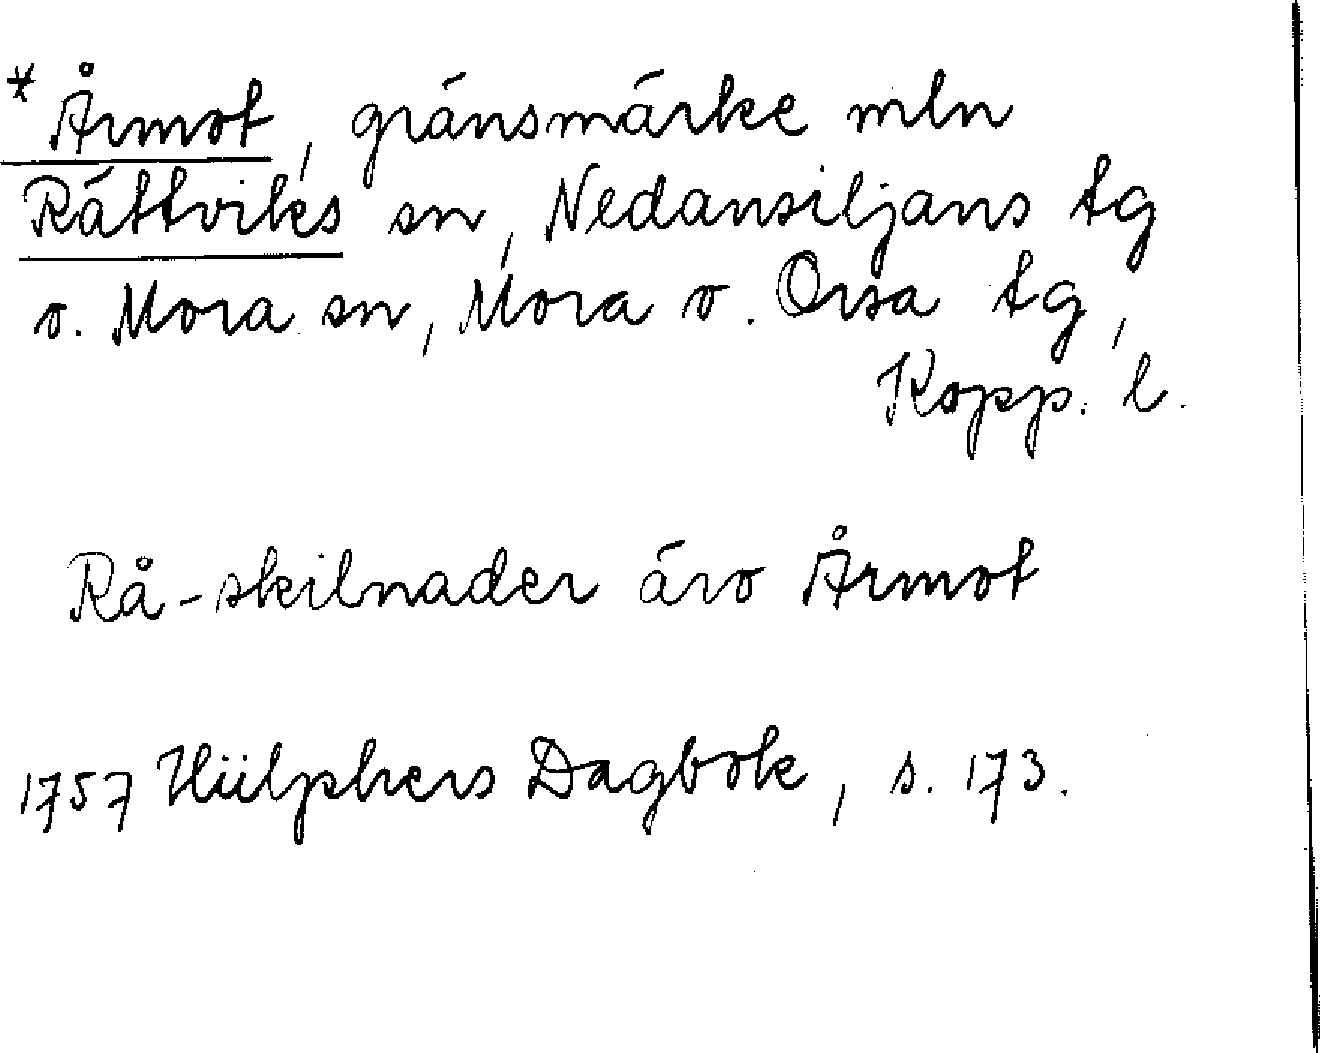 * Årmot, gränsmärke mln
Rättviks sn, Nedansiljans tg
o. Mora sn, Mora o. Orsa tg,
Kopp. l.
Rå-skilnader äro Årmot
1757 Hülphers Dagbok, s. 173.